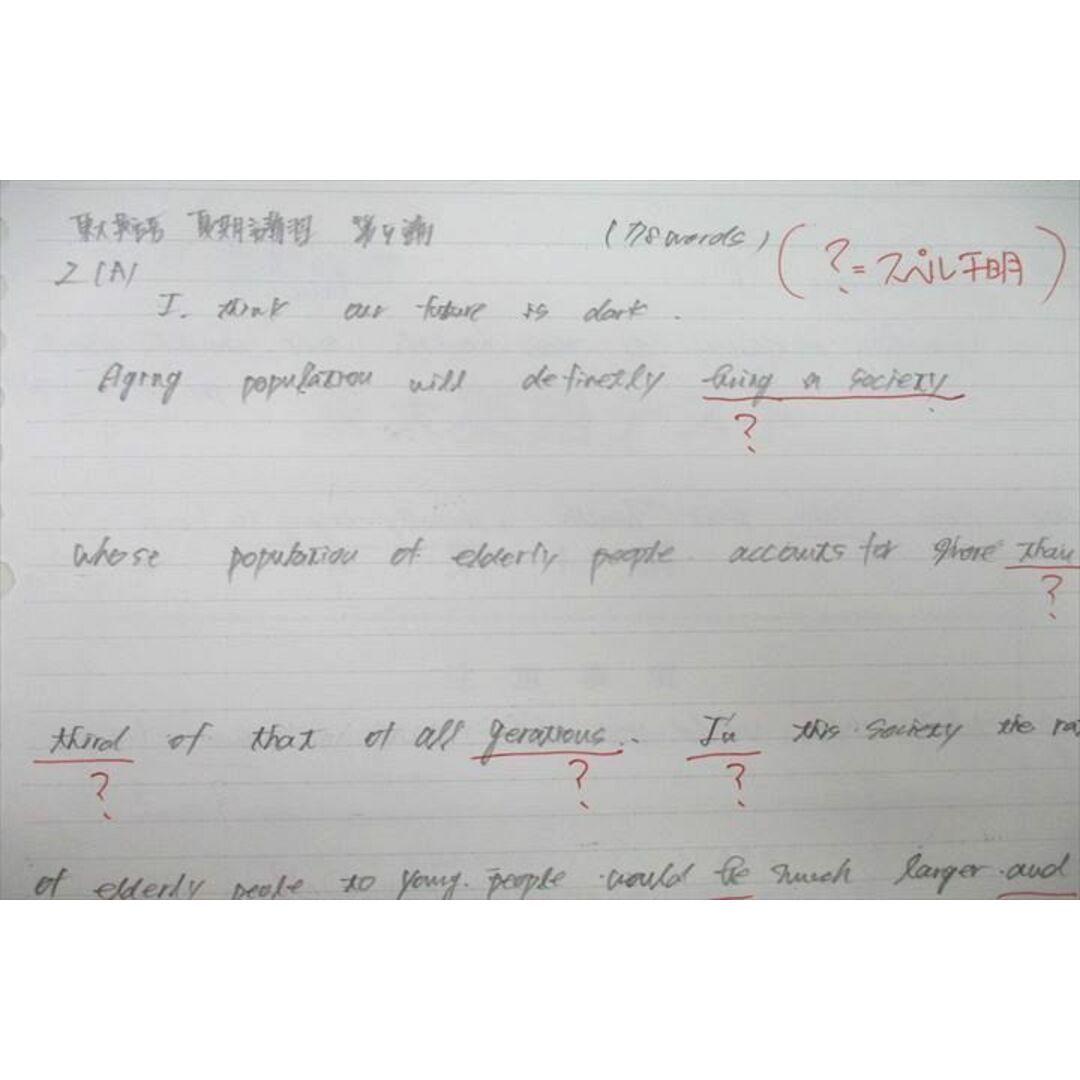 東大英語 夏期講習 第4講 (78 words) (?=スペル不明)
2(A)
I think our future is dark.
Aging population will definetly bring a society
?
whose population of elderly people accounts for more than
?
third of that of all gerations. In this society the
? ? ?
of elderly peole to young people would be much larger and